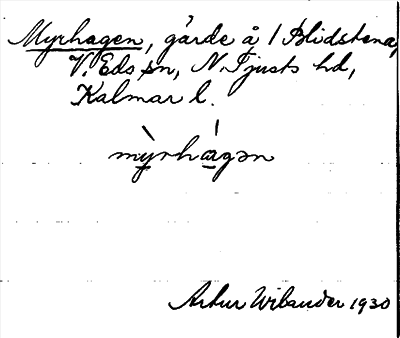 Myrhagen, gärde å 1 Blidstena,
V. Eds sn, N. Tjusts hd,
Kalmar l.
mỳrhágən
Artur Wilander 1930